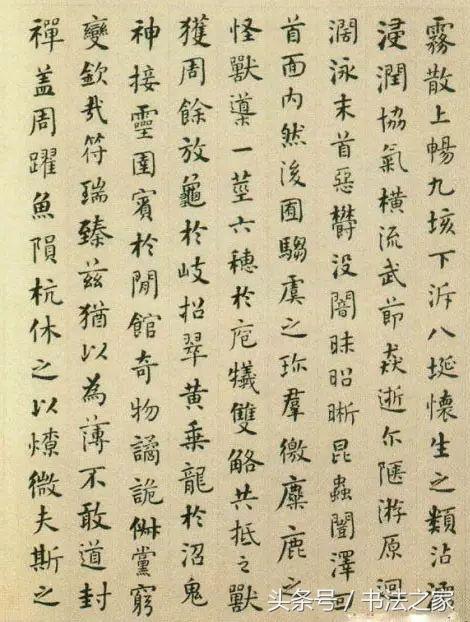 霧散上暢九垓下泝八埏懷生之類沾濡
浸潤協氣橫流武節猋逝尓陿游原迥
濶泳末首惡欝没闇昧昭晰昆蟲闓澤回
首面内然後囿騶虞之珎羣徼麋鹿之
怪獸導一莖六穗於庖犧雙觡共抵之獸
獲周餘放龜於岐招翠黄乗龍於沼鬼
神接靈圉賓於閒館奇物譎詭俶黨窮
變欽哉符瑞臻茲猶以為薄不敢道封
禪盖周躍魚隕杭休之以燎微夫斯之
头条号 / 书法之家